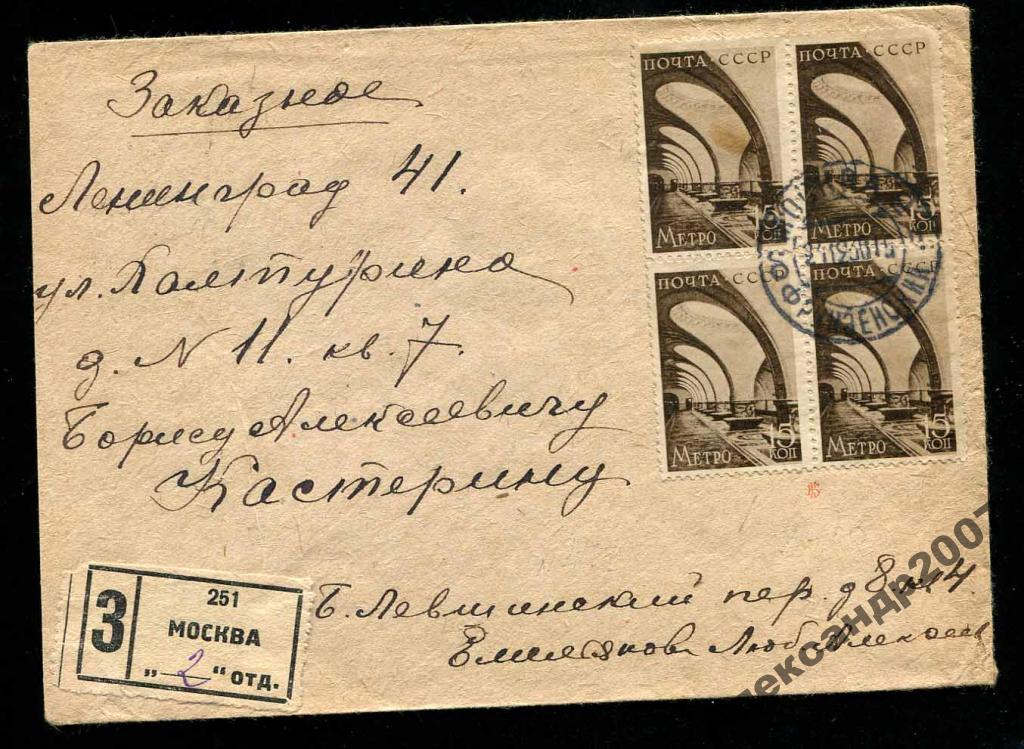 Заказное
Ленинград 41.
ул. Халтурина
д. N 11. кв. 7.
Борису Алексеевичу
Кастерину
ПОЧТА · СССР
МЕТРО 15 КОП
ПОЧТА · СССР
МЕТРО 15 КОП
ПОЧТА · СССР
МЕТРО 15 КОП
ПОЧТА · СССР
МЕТРО 15 КОП
15
З
251
МОСКВА
„2“ отд.
Б. Левшинский пер. д 8 14
Люб. Алексеев
лександр2007